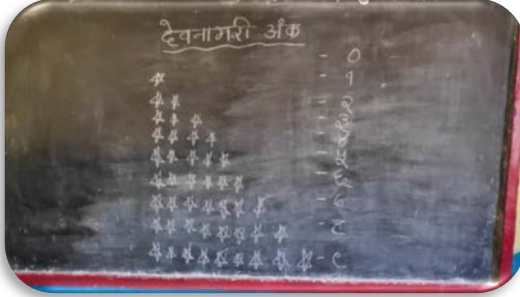 देवनागरी अंक
- ०
- १
- २
- ३
- ४
- ५
- ६
- ७
- ८
- ९